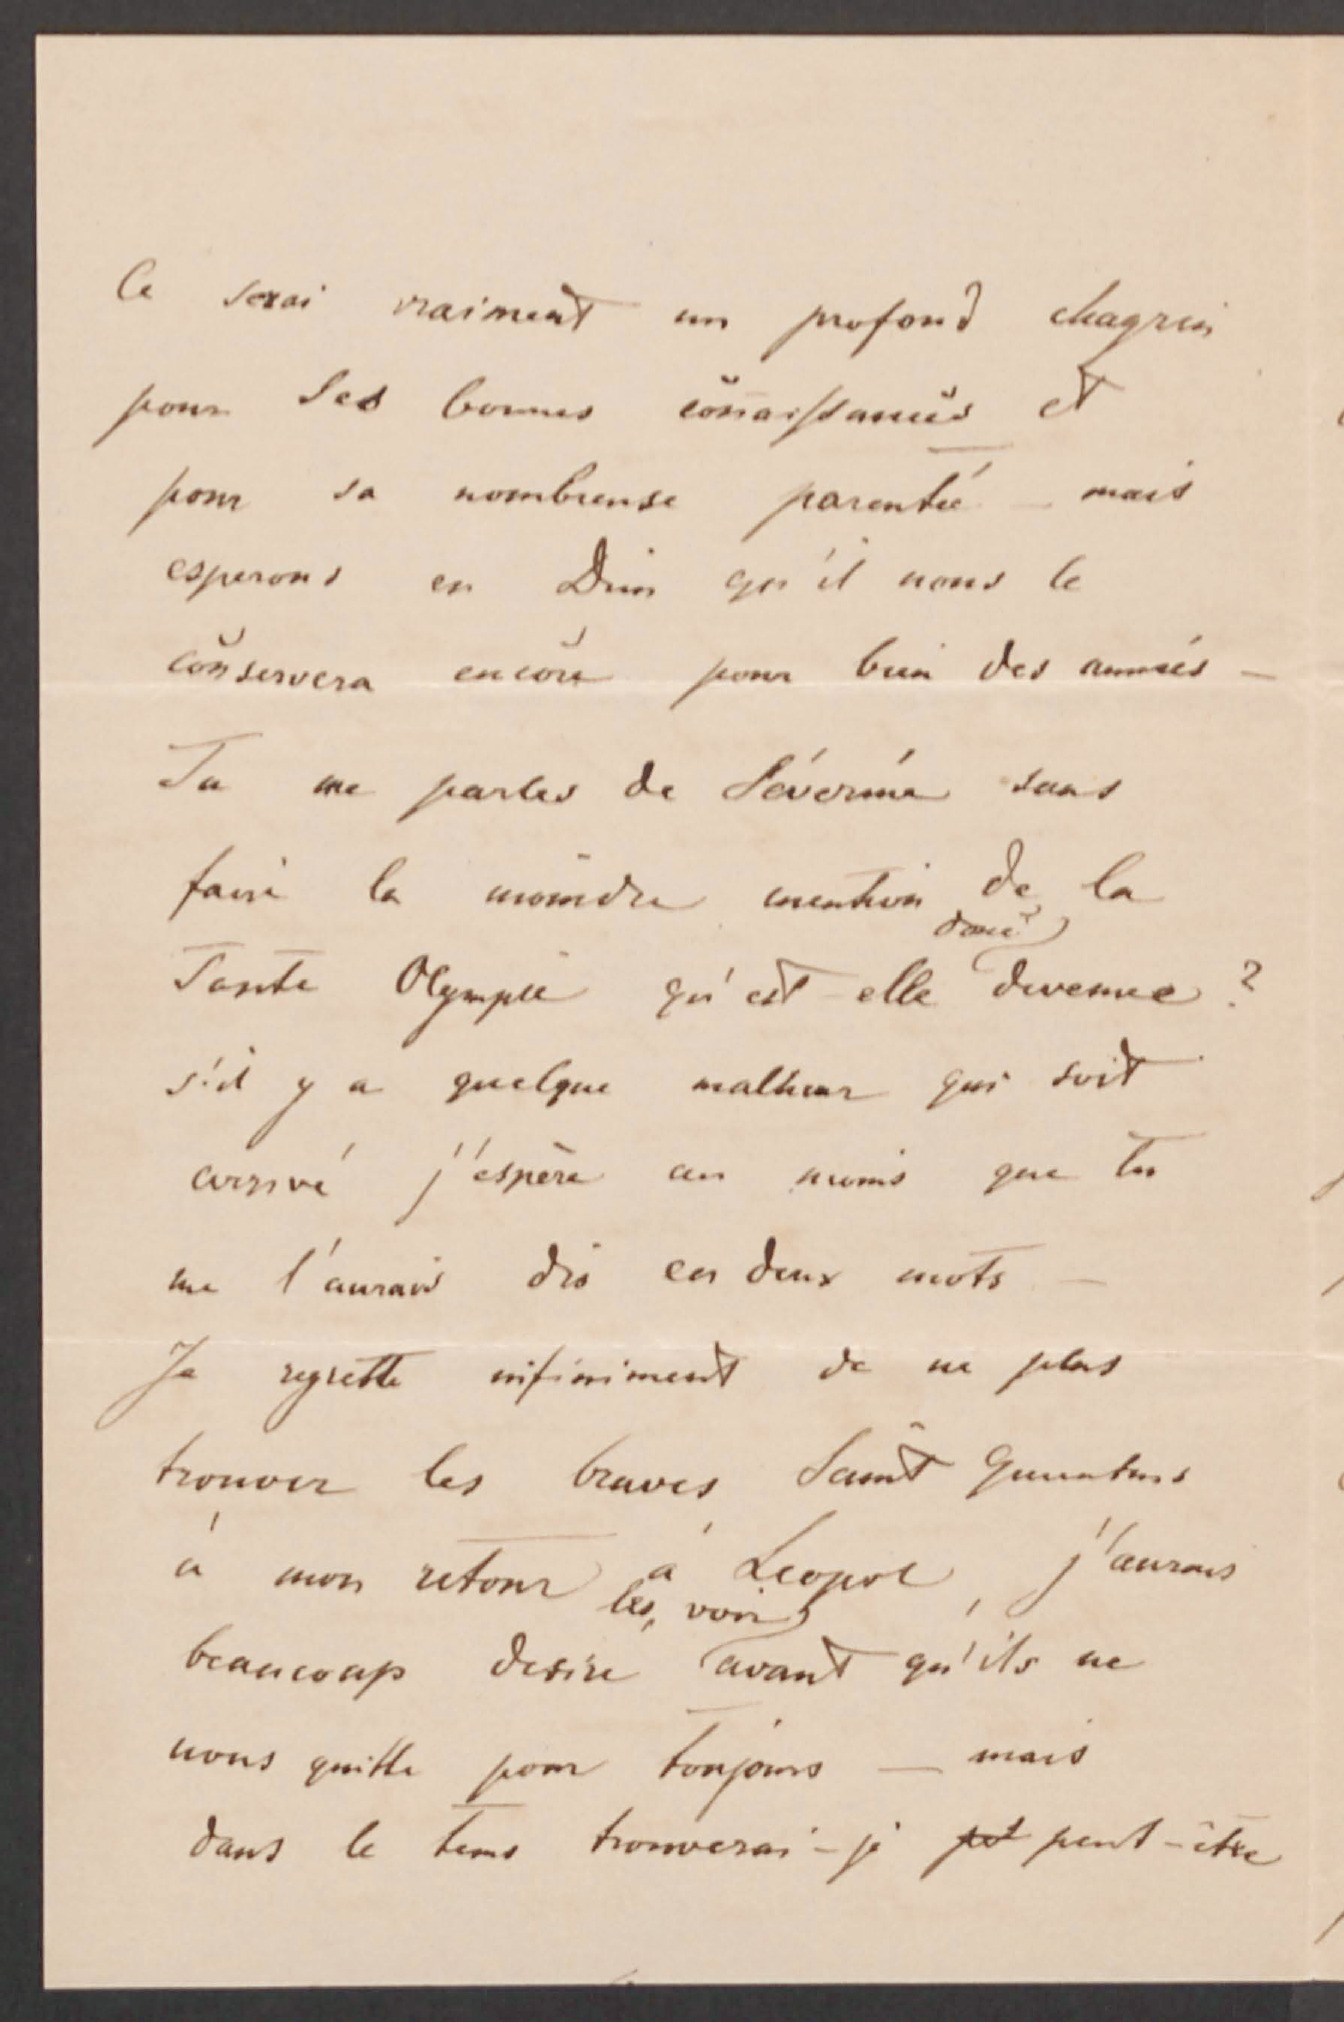 Ce serai vraiment un profond chagrin
pour Ses bonnes connaissances et
pour sa nombreuse parenté – mais
esperons en Dieu qu'il nous le
conservera encore pour bien des années –
Tu me parles de Séverine sans
faire la moindre mention de la
donc
Tante Olympie qu'est-elle devenue ?
s'il y a quelque malheur qui soit
arrivé j'espère au moins que tu
me l'aurais dis en deux mots –
Je regrette infiniment de ne plus
trouver les braves Saint Quentins
à mon retour à Leopol, j'aurais
les voir
beaucoup desire avant qu'ils ne
nous quitte pour toujours – mais
dans le tems trouverai-je peut-être